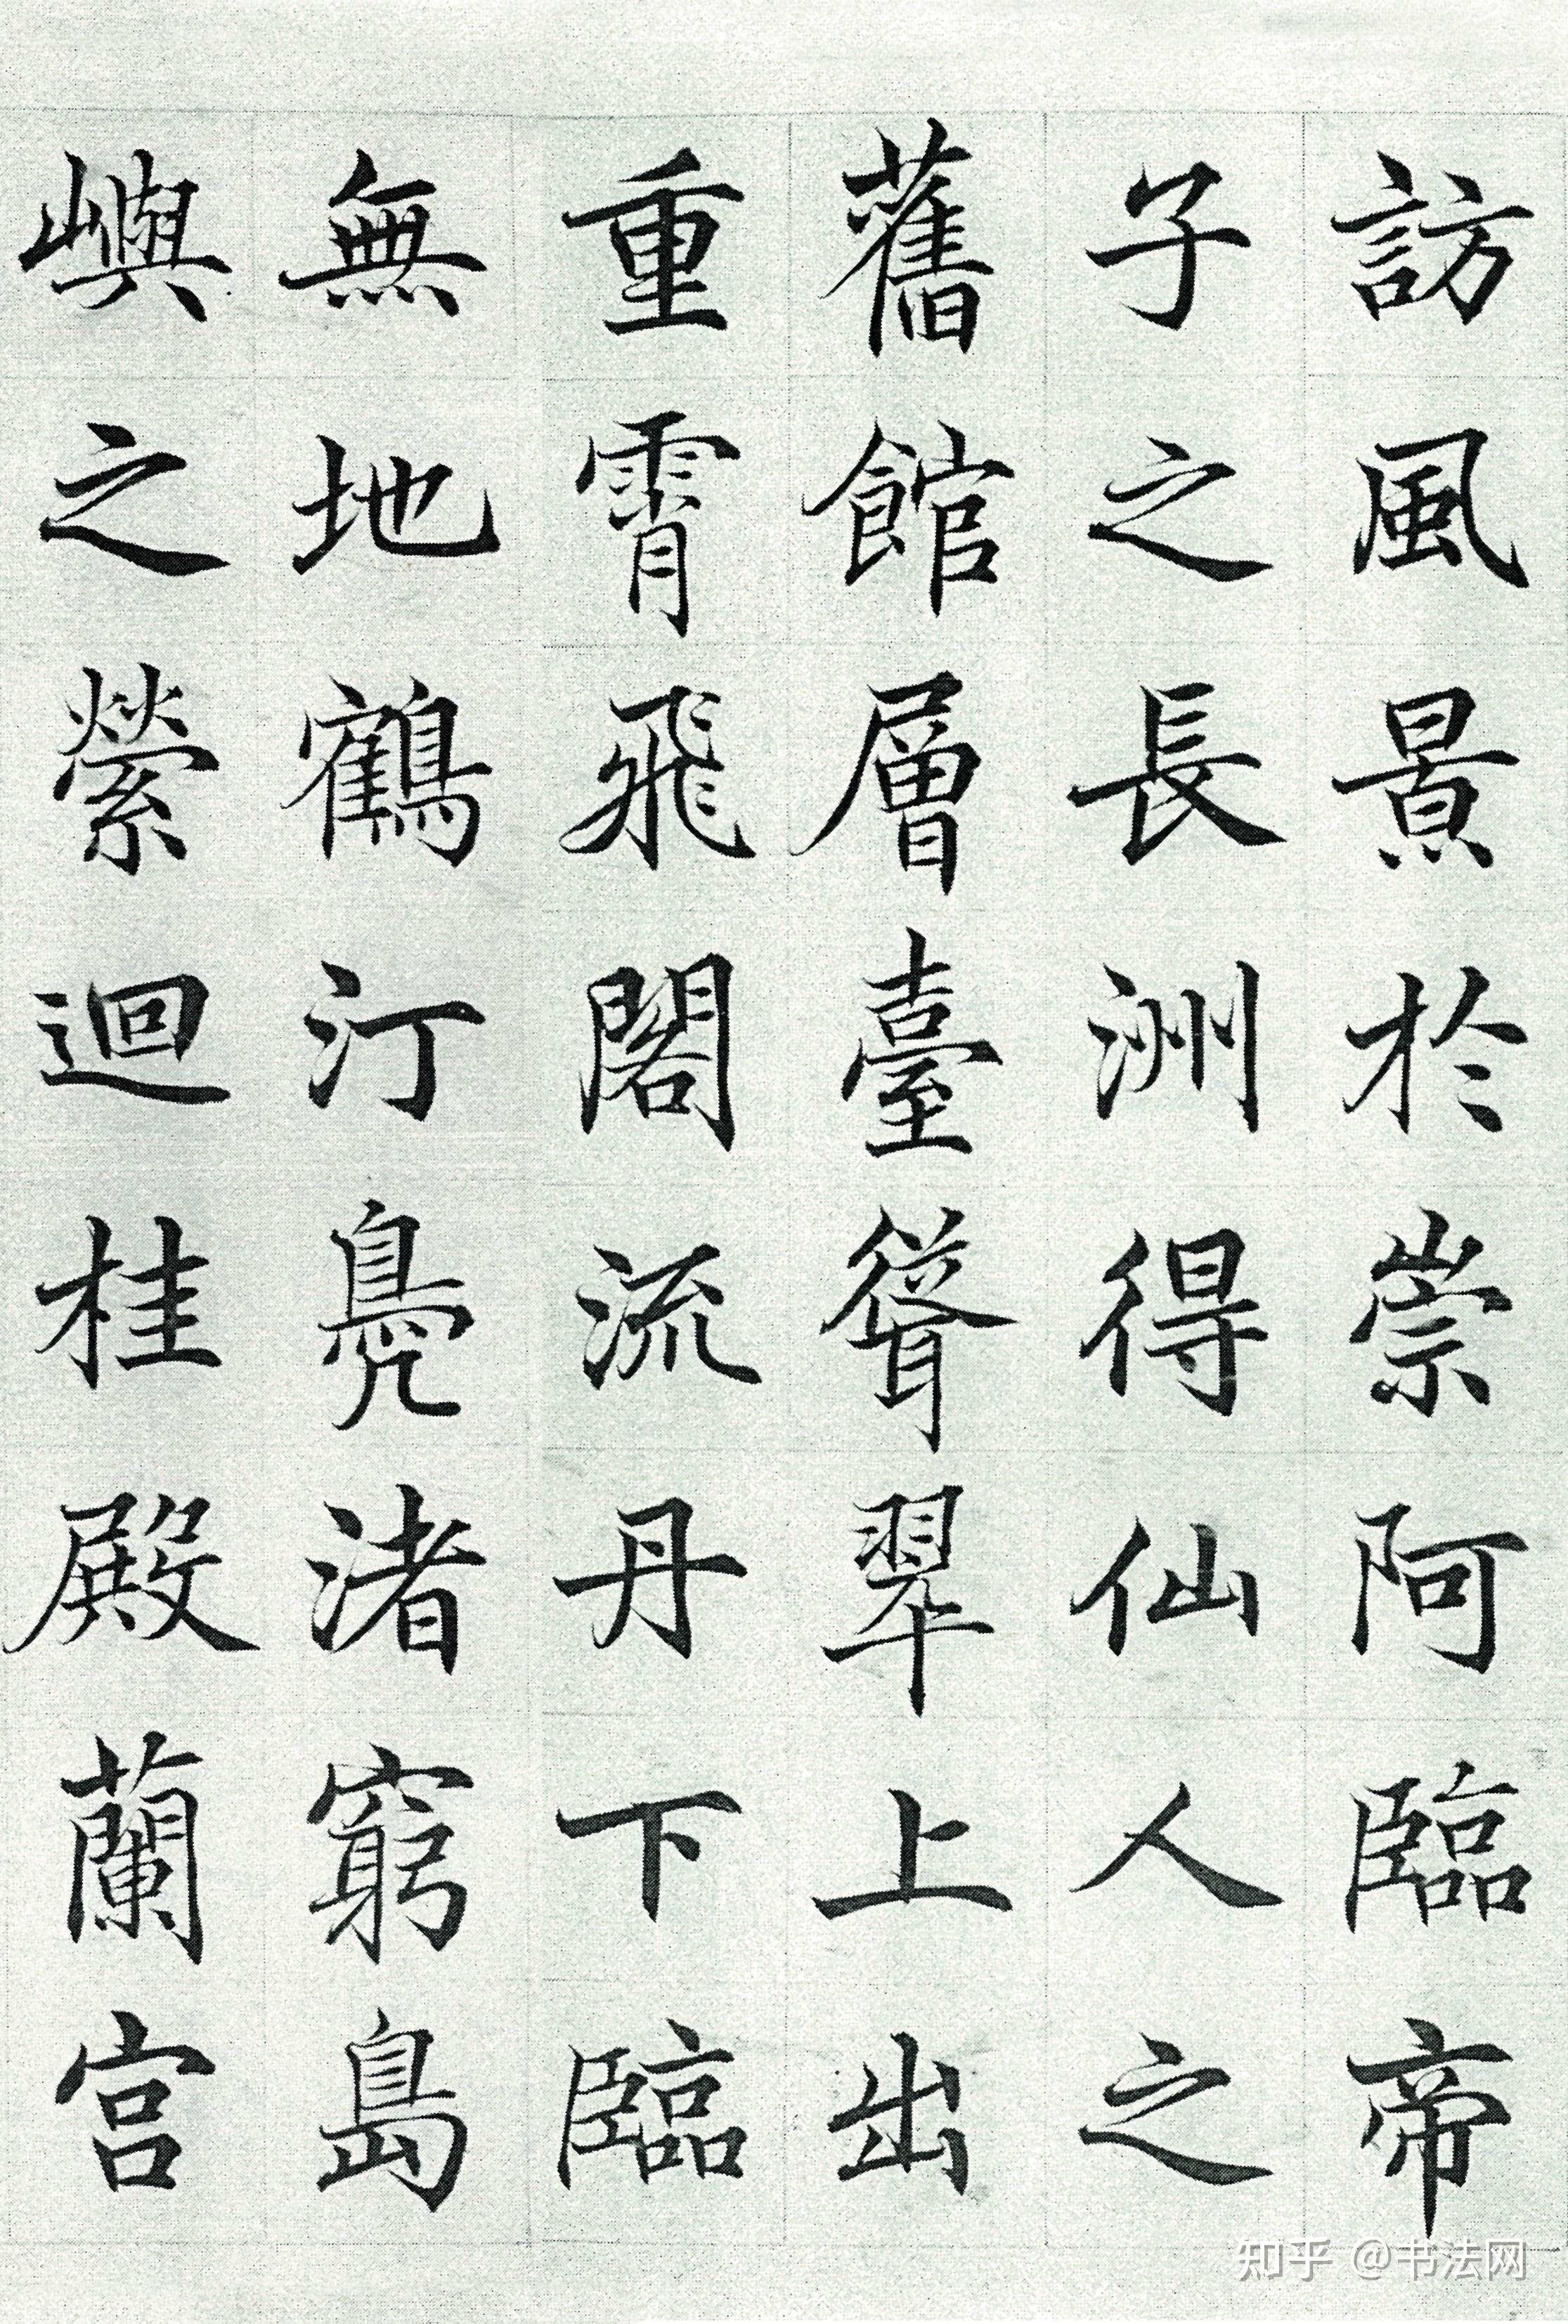 訪風景於崇阿臨帝
子之長洲得仙人之
舊館層臺聳翠上出
重霄飛閣流丹下臨
無地鶴汀鳧渚窮島
嶼之縈迴桂殿蘭宮
知乎 @书法网